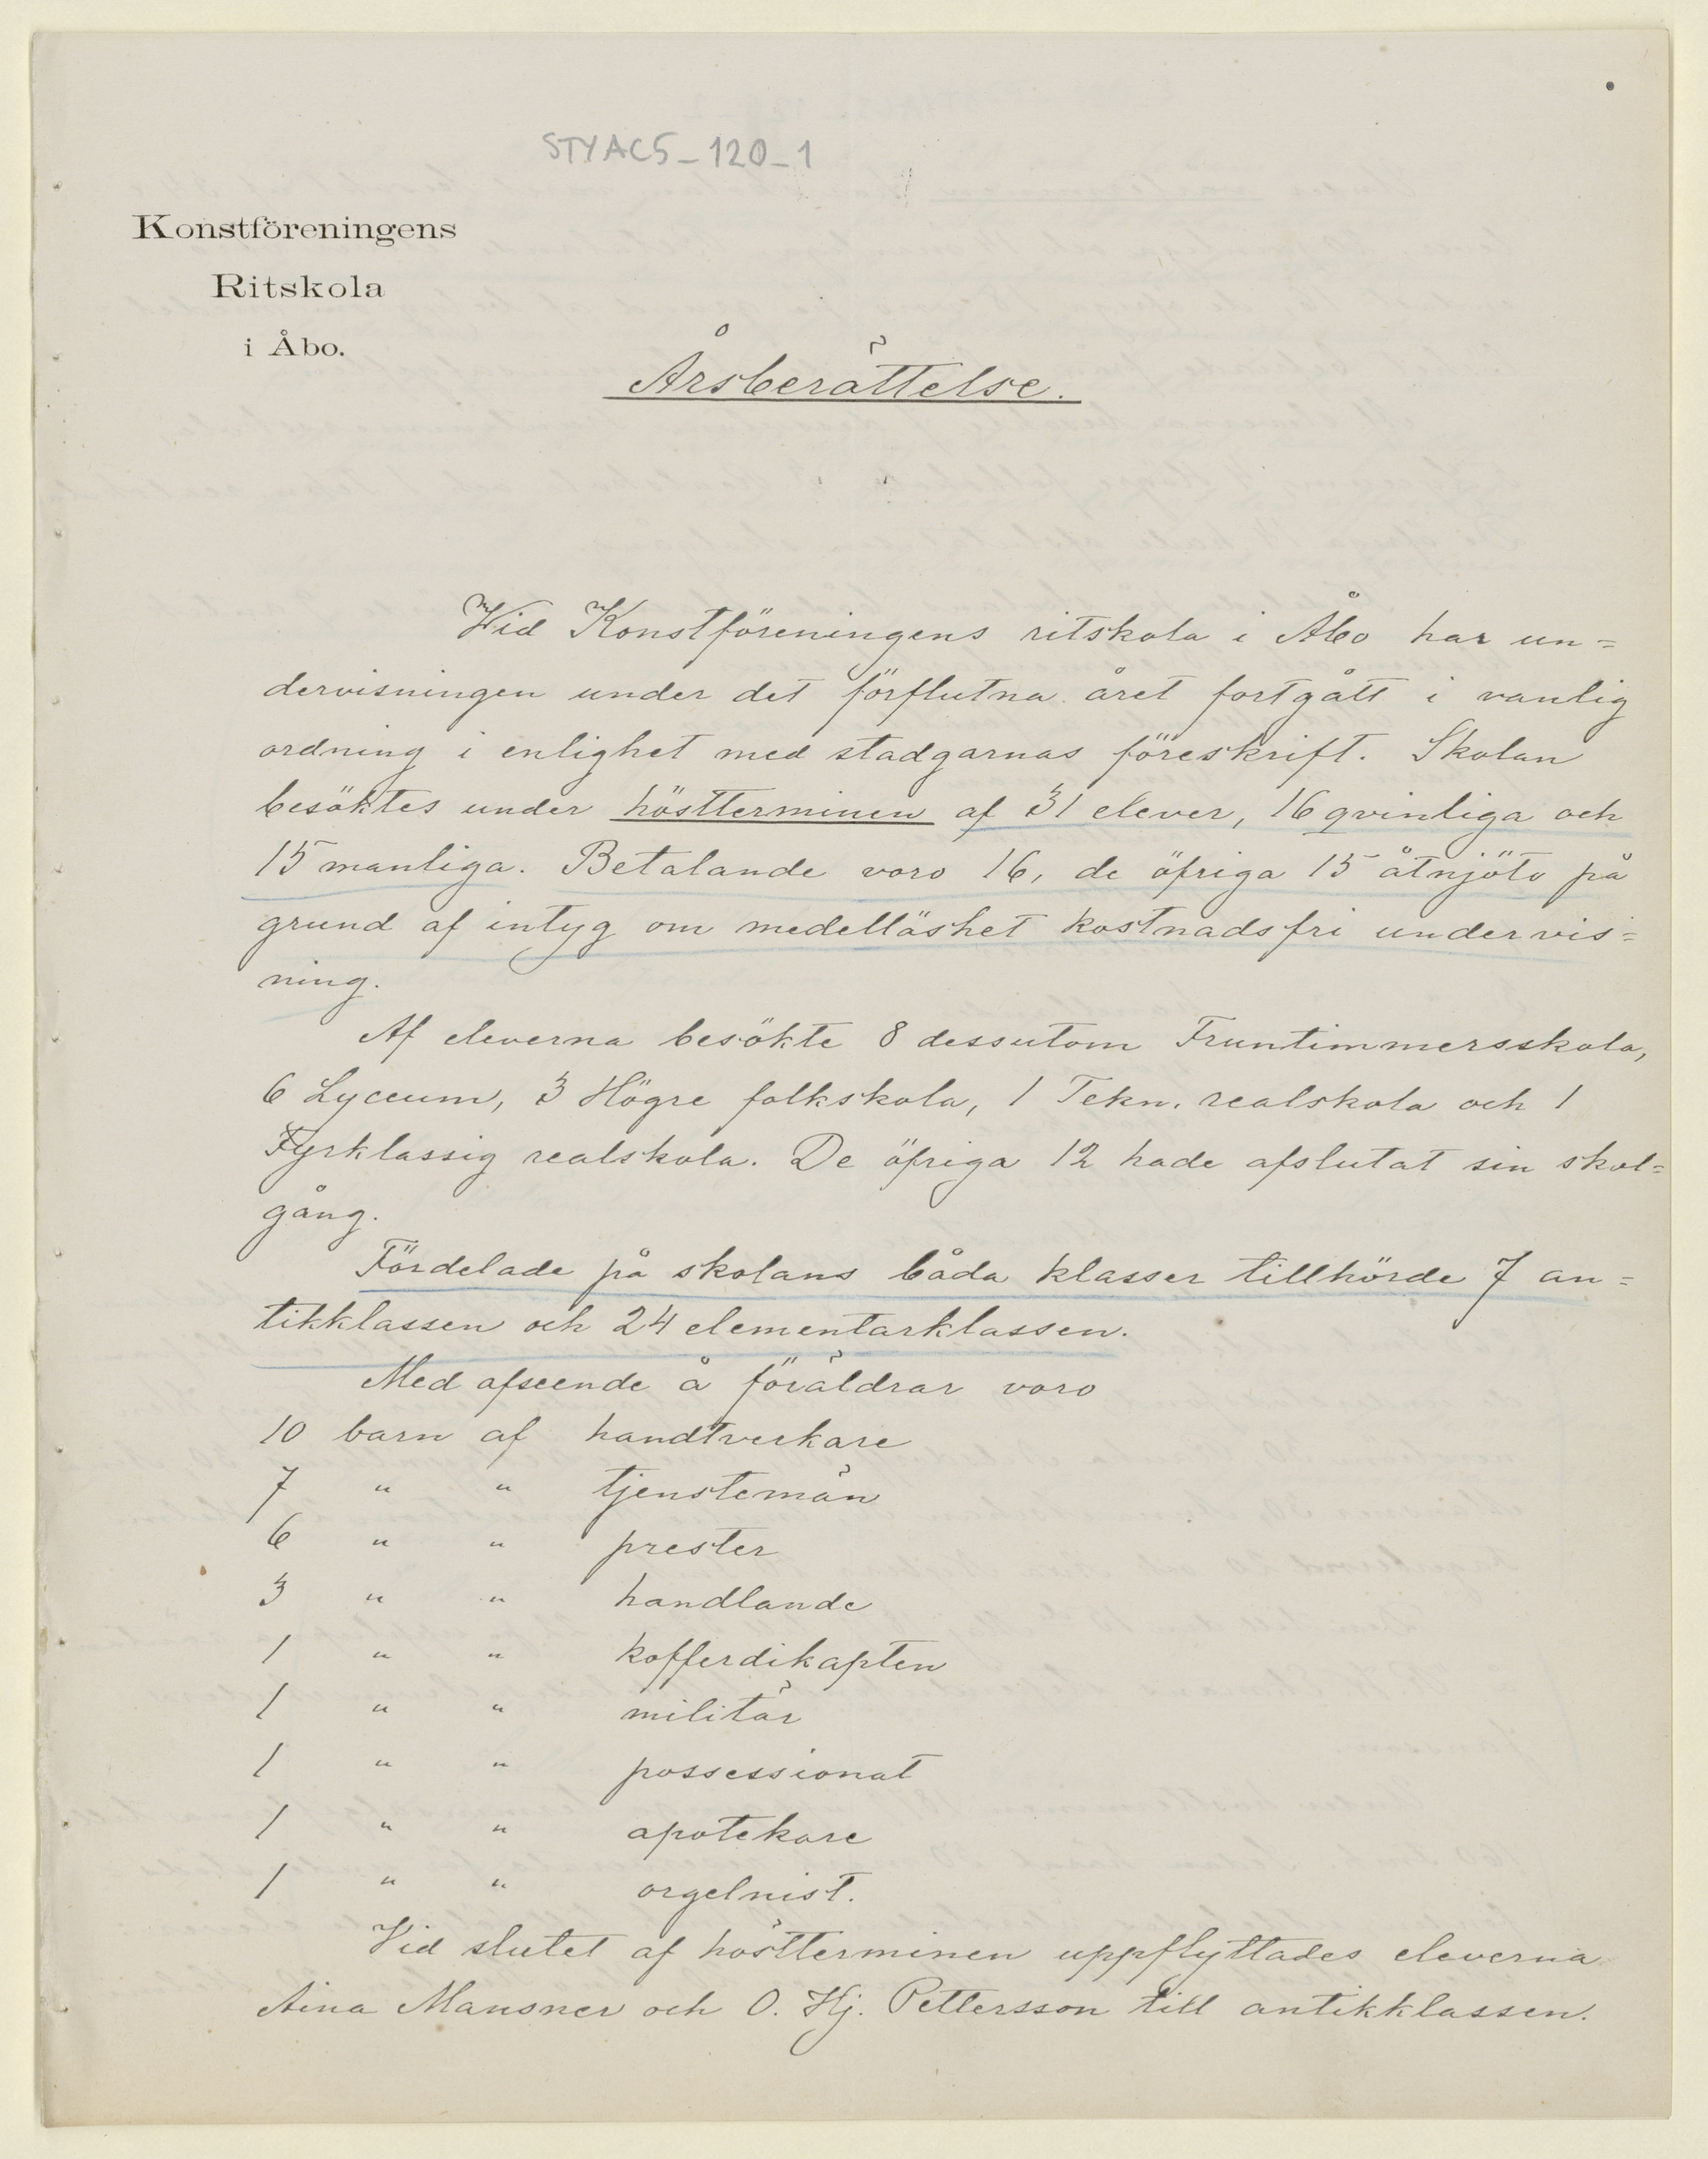 STYAC5_120_1
Konstföreningens
Ritskola
i Åbo.
Årsberättelse.
Vid Konstföreningens ritskola i Åbo har un=
dervisningen under det förflutna året fortgått i vanlig
ordning i enlighet med stadgarnas föreskrift. Skolan
besöktes under höstterminen af 31 elever, 16 qvinliga och
15 manliga. Betalande voro 16, de öfriga 15 åtnjöto på
grund af intyg om medellöshet kostnadsfri undervis=
ning.
Af eleverna besökte 8 dessutom Fruntimmersskola,
6 Lyceum, 3 Högre folkskola, 1 Tekn. realskola och 1
Fyrklassig realskola. De öfriga 12 hade afslutat sin skol=
gång.
Fördelade på skolans båda klasser tillhörde 7 an=
tikklassen och 24 elementarklassen.
Med afseende å föräldrar voro
10 barn af handtverkare
7 " " tjenstemän
6 " " prester
3 " " handlande
1 " " kofferdikapten
1 " " militär
1 " " possessionat
1 " " apotekare
1 " " orgelnist.
Vid slutet af höstterminen uppflyttades eleverna
Aina Mansner och O. Hj. Pettersson till antikklassen.